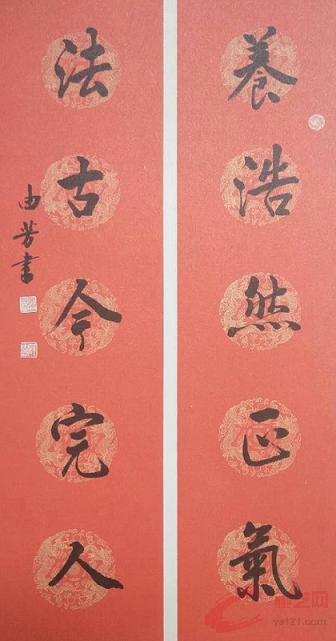 養浩然正氣
法古今完人
由芳書
ys121.com